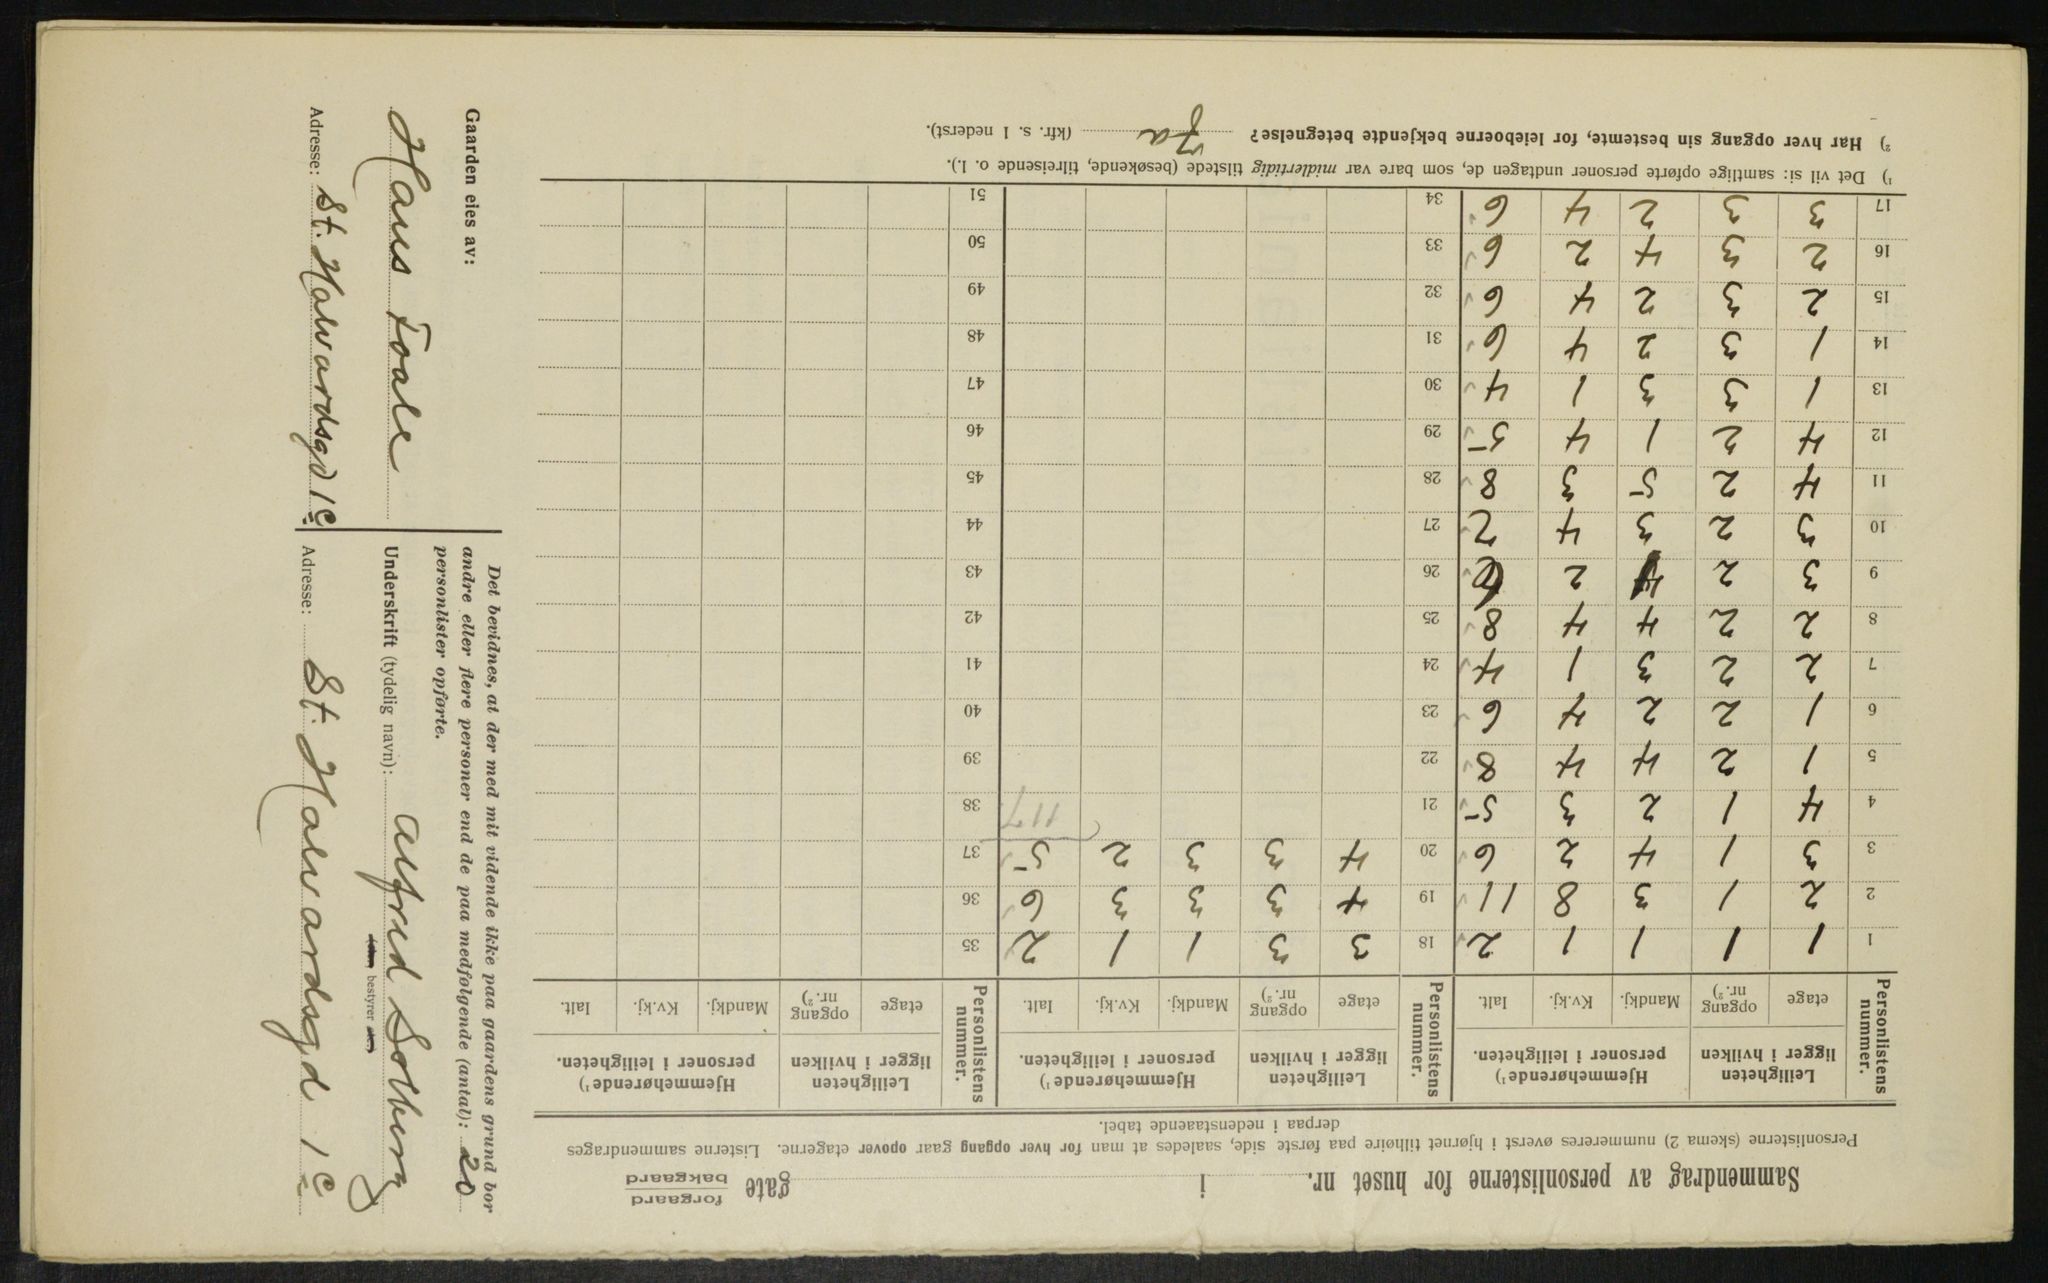 Sammendrag av personlisterne for huset nr. i gate forgaard bakgaard
Personlisterne (skema 2) nummereres øverst i hjørnet tilhøire paa første side, saaledes at man for hver opgang gaar opover etagerne. Listerne sammendrages
derpaa i nedenstaaende tabel.
Personlistens nummer. Leiligheten ligger i hvilken Hjemmehørende¹) personer i leiligheten. Personlistens nummer. Leiligheten ligger i hvilken Hjemmehørende¹) personer i leiligheten. Personlistens nummer. Leiligheten ligger i hvilken Hjemmehørende¹) personer i leiligheten.
etage opgang nr.²) Mandkj. Kv.kj. Ialt. etage opgang nr.²) Mandkj. Kv.kj. Ialt. etage opgang nr.²) Mandkj. Kv.kj. Ialt.
1 1 1 1 1 2 18 3 3 1 1 2 35
2 2 1 3 8 11 19 4 3 3 3 6 36
3 3 1 4 2 6 20 4 3 3 2 5 37
4 4 1 2 3 5 21 117 38
5 1 2 4 4 8 22 39
6 1 2 2 4 6 23 40
7 2 2 3 1 4 24 41
8 2 2 4 4 8 25 42
9 3 2 4 2 6 26 43
10 3 2 3 4 7 27 44
11 4 2 5 3 8 28 45
12 4 2 1 4 5 29 46
13 1 3 3 1 4 30 47
14 1 3 2 4 6 31 48
15 2 3 2 4 6 32 49
16 2 3 4 2 6 33 50
17 3 3 2 4 6 34 51
¹) Det vil si: samtlige opførte personer undtagen de, som bare var midlertidig tilstede (besøkende, tilreisende o. l.).
²) Har hver opgang sin bestemte, for leieboerne bekjendte betegnelse? Ja (kfr. s. 1 nederst).
Gaarden eies av:
Hans Foale
Adresse: St. Halvardsgd 1c
Det bevidnes, at der med mit vidende ikke paa gaardens grund bor
andre eller flere personer end de paa medfølgende (antal): 20
personlister opførte.
Underskrift (tydelig navn): Alfred Solberg
bestyrer
Adresse: St. Halvardsgd 1c